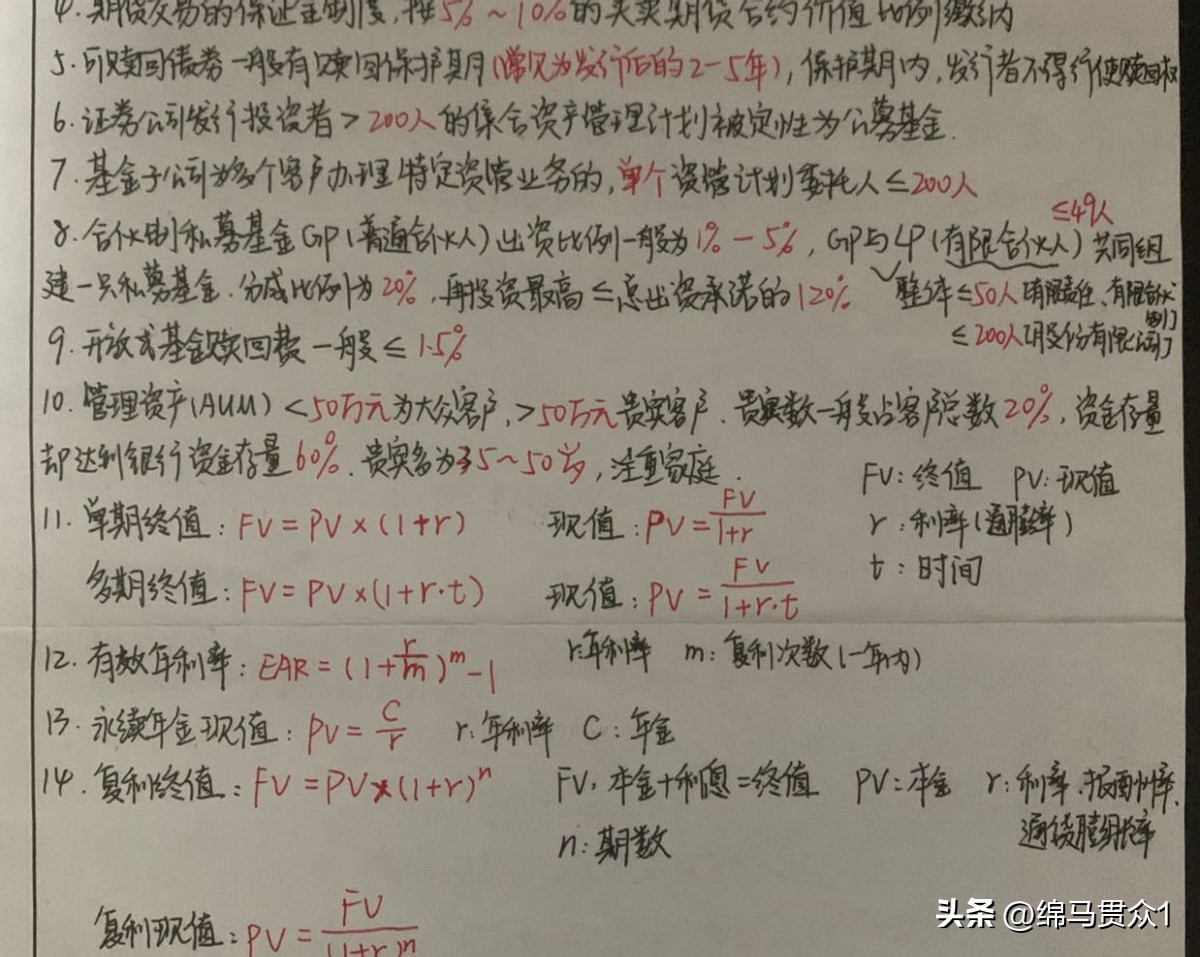 4. 期货交易的保证金制度,按5%~10%的买卖期货合约价值比例缴纳
5. 可赎回债券一般有赎回保护期(常见为发行后的2-5年),保护期内,发行者不得行使赎回权
6. 证券公司发行投资者>200人的集合资产管理计划被定性为公募基金.
7. 基金子公司为多个客户办理特定资管业务的,单个资管计划委托人≤200人
≤49人
8. 合伙制私募基金GP(普通合伙人)出资比例一般为1%-5%,GP与LP(有限合伙人)共同组
建一只私募基金.分成比例为20%,再投资最高≤总出资承诺的120% 整体≤50人(有限责任、有限合伙制)
9. 开放式基金赎回费一般≤1.5% ≤200人(股份有限公司)
10. 管理资产(AUM)<50万元为大众客户,>50万元贵宾客户.贵宾数一般占客户总数20%,资金存量
却达到银行资金存量60%.贵宾多为35~50岁,注重家庭.
FV:终值 PV:现值
11. 单期终值:FV=PV×(1+r) 现值:PV=FV/1+r r:利率(通膨率)
多期终值:FV=PV×(1+r·t) 现值:PV=FV/1+r·t t:时间
12. 有效年利率:EAR=(1+r/m)^m-1 r:年利率 m:复利次数(一年内)
13. 永续年金现值:PV=C/r r:年利率 C:年金
14. 复利终值:FV=PV×(1+r)^n FV:本金+利息=终值 PV:本金 r:利率、报酬率、
n:期数 通货膨胀率
复利现值:PV=FV/(1+r)^n
头条 @绵马贯众1